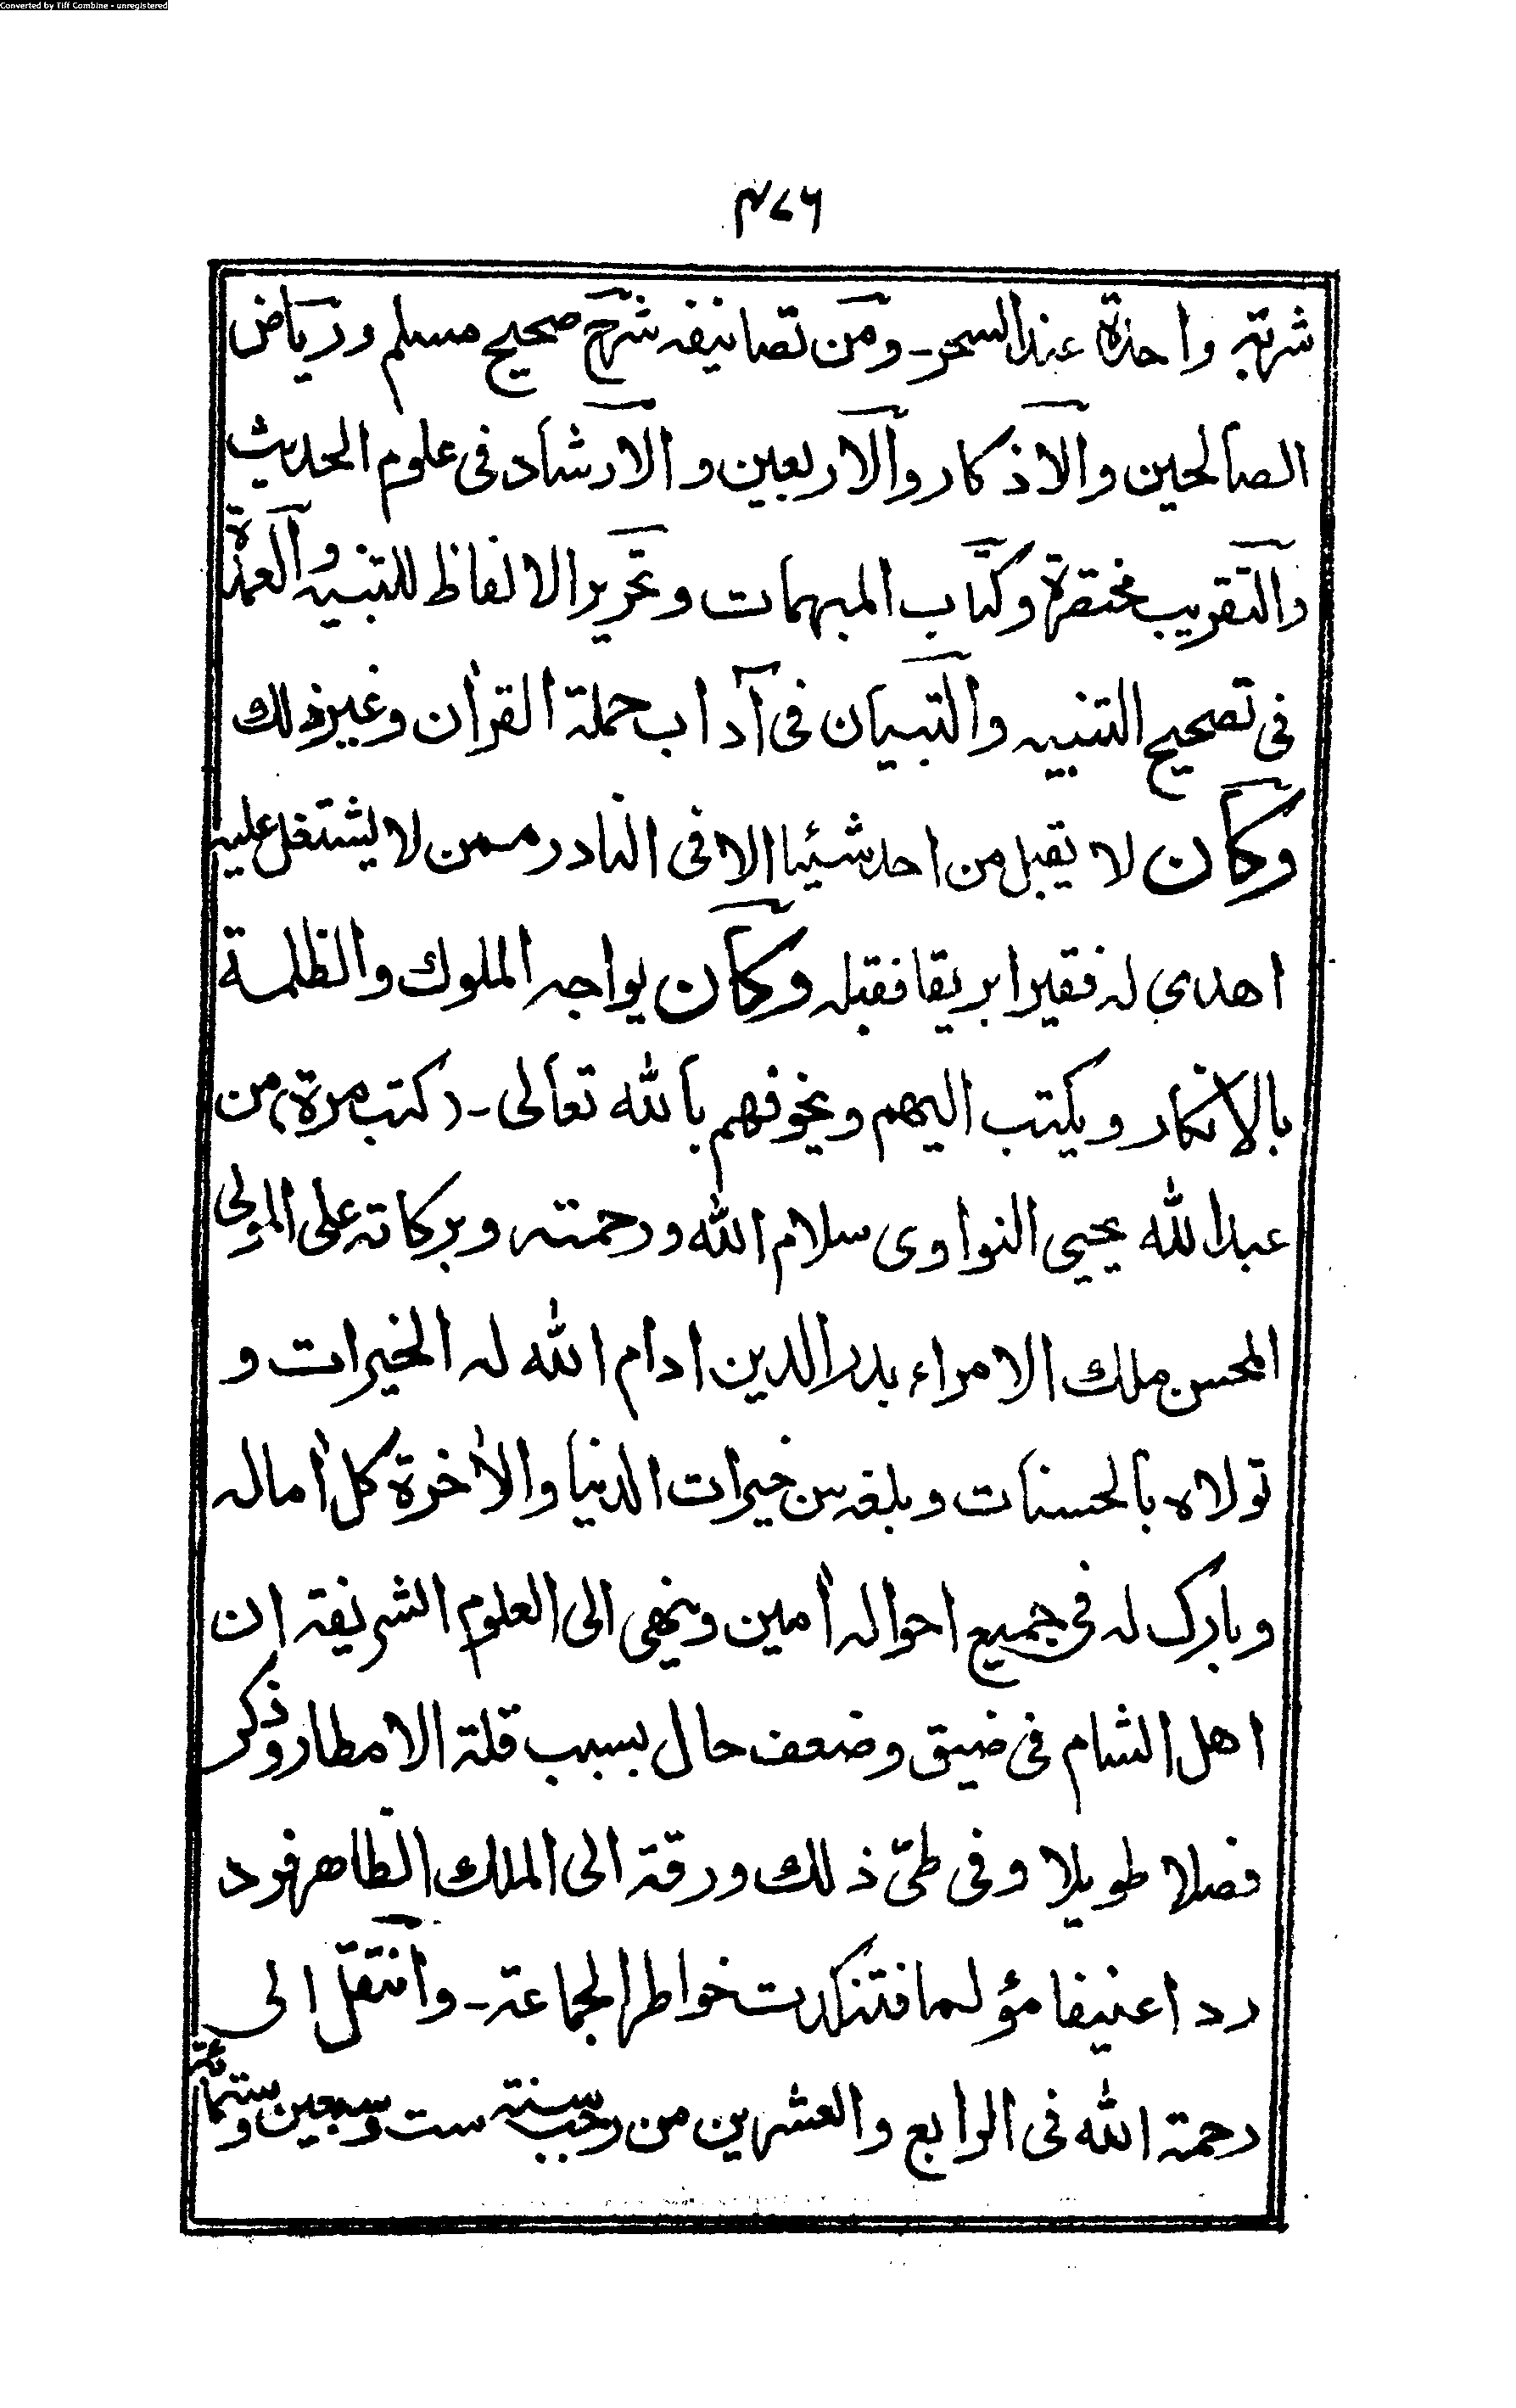 Converted by Tiff Combine - unregistered
۴۷۶
شربته واحدة عند السحر - ومن تصانيفه شرح صحيح مسلم ورياض
الصالحين والاذكار والاربعين والارشاد فى علوم الحديث
والتقريب مختصرة وكتاب المبهمات وتحرير الالفاظ للتنبيه والعمدة
فى تصحيح التنبيه والتبيان فى آداب حملة القرأن وغير ذلك
وكان لا يقبل من احد شيئا الا فى النادر ممن لا يشتغل عليه
اهدى له فقير ابريقا فقبله وكان يواجه الملوك والظلمة
بالانكار ويكتب اليهم ويخوفهم بالله تعالى - (كتب مرة) من
عبد الله يحيى النواوى سلام الله ورحمته وبركاته على المولى
المحسن ملك الامراء بدر الدين ادام الله له الخيرات و
تولاه بالحسنات وبلغه من خيرات الدنيا والأخرة كل أماله
وبارك له فى جميع احواله أمين وينهى الى العلوم الشريفة ان
اهل الشام فى ضيق وضعف حال بسبب قلة الامطار وذكر
فصلا طويلا وفى طىّ ذلك ورقة الى الملك الظاهر فرد
ردا عنيفا مؤلما فتنكدت خواطر الجماعة - وانتقل الى
رحمة الله فى الرابع والعشرين من رجب سنة ست وسبعين وستمائة